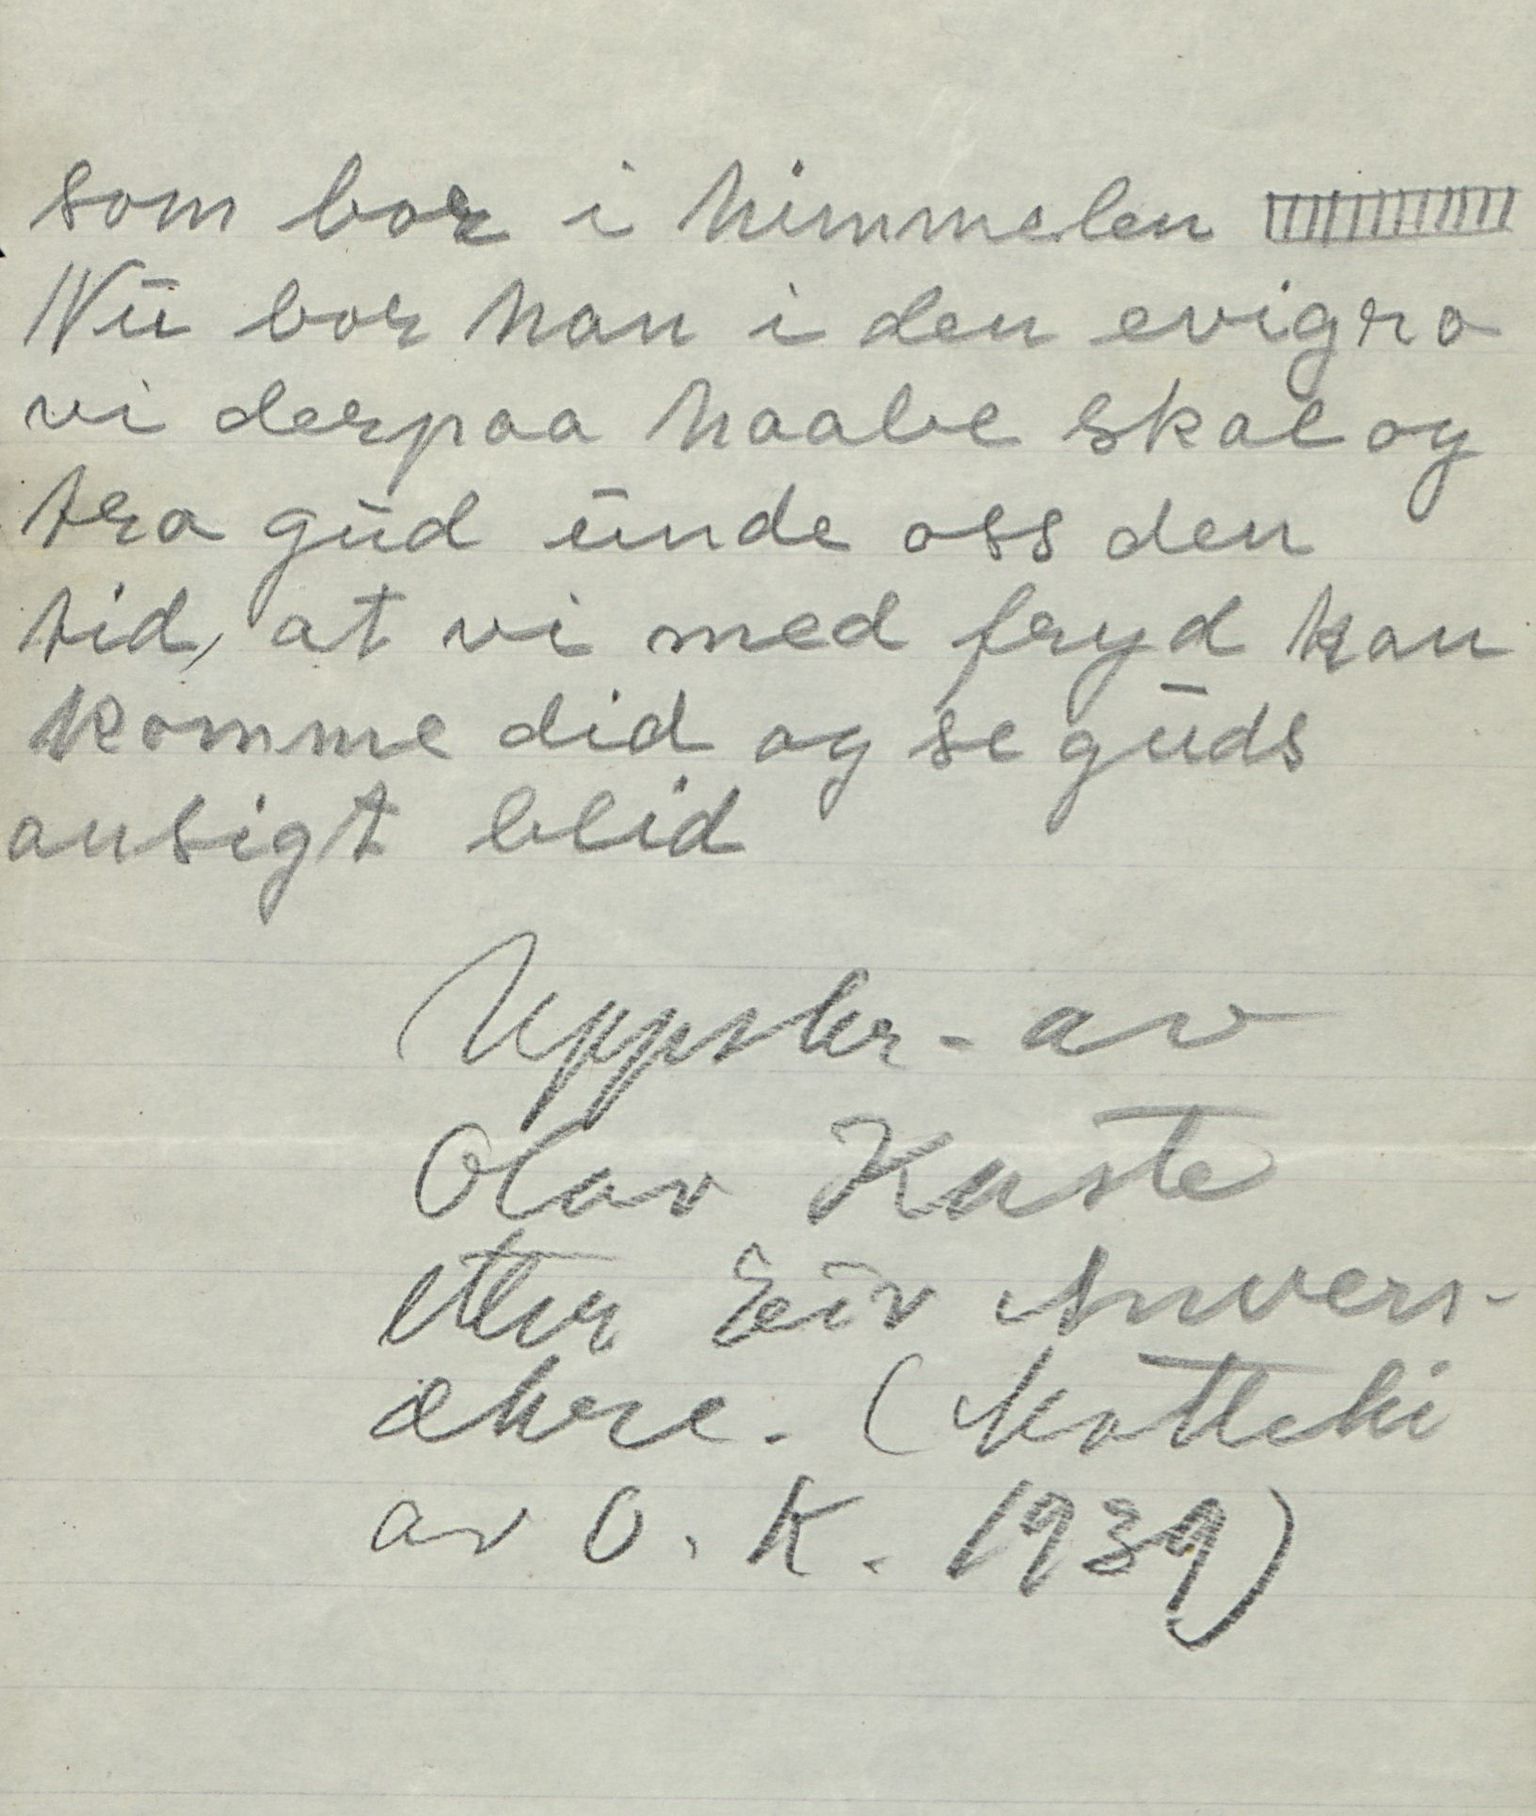 som bor i himmelen
Nu bor han i den evigro
vi derpaa haabe skal og
tro gud unde oss den
tid, at vi med fryd kan
komme did og se guds
ansigt blid
Uppskr. av
Olav Kaste
etter Eiv
(
av O. K. 1939)